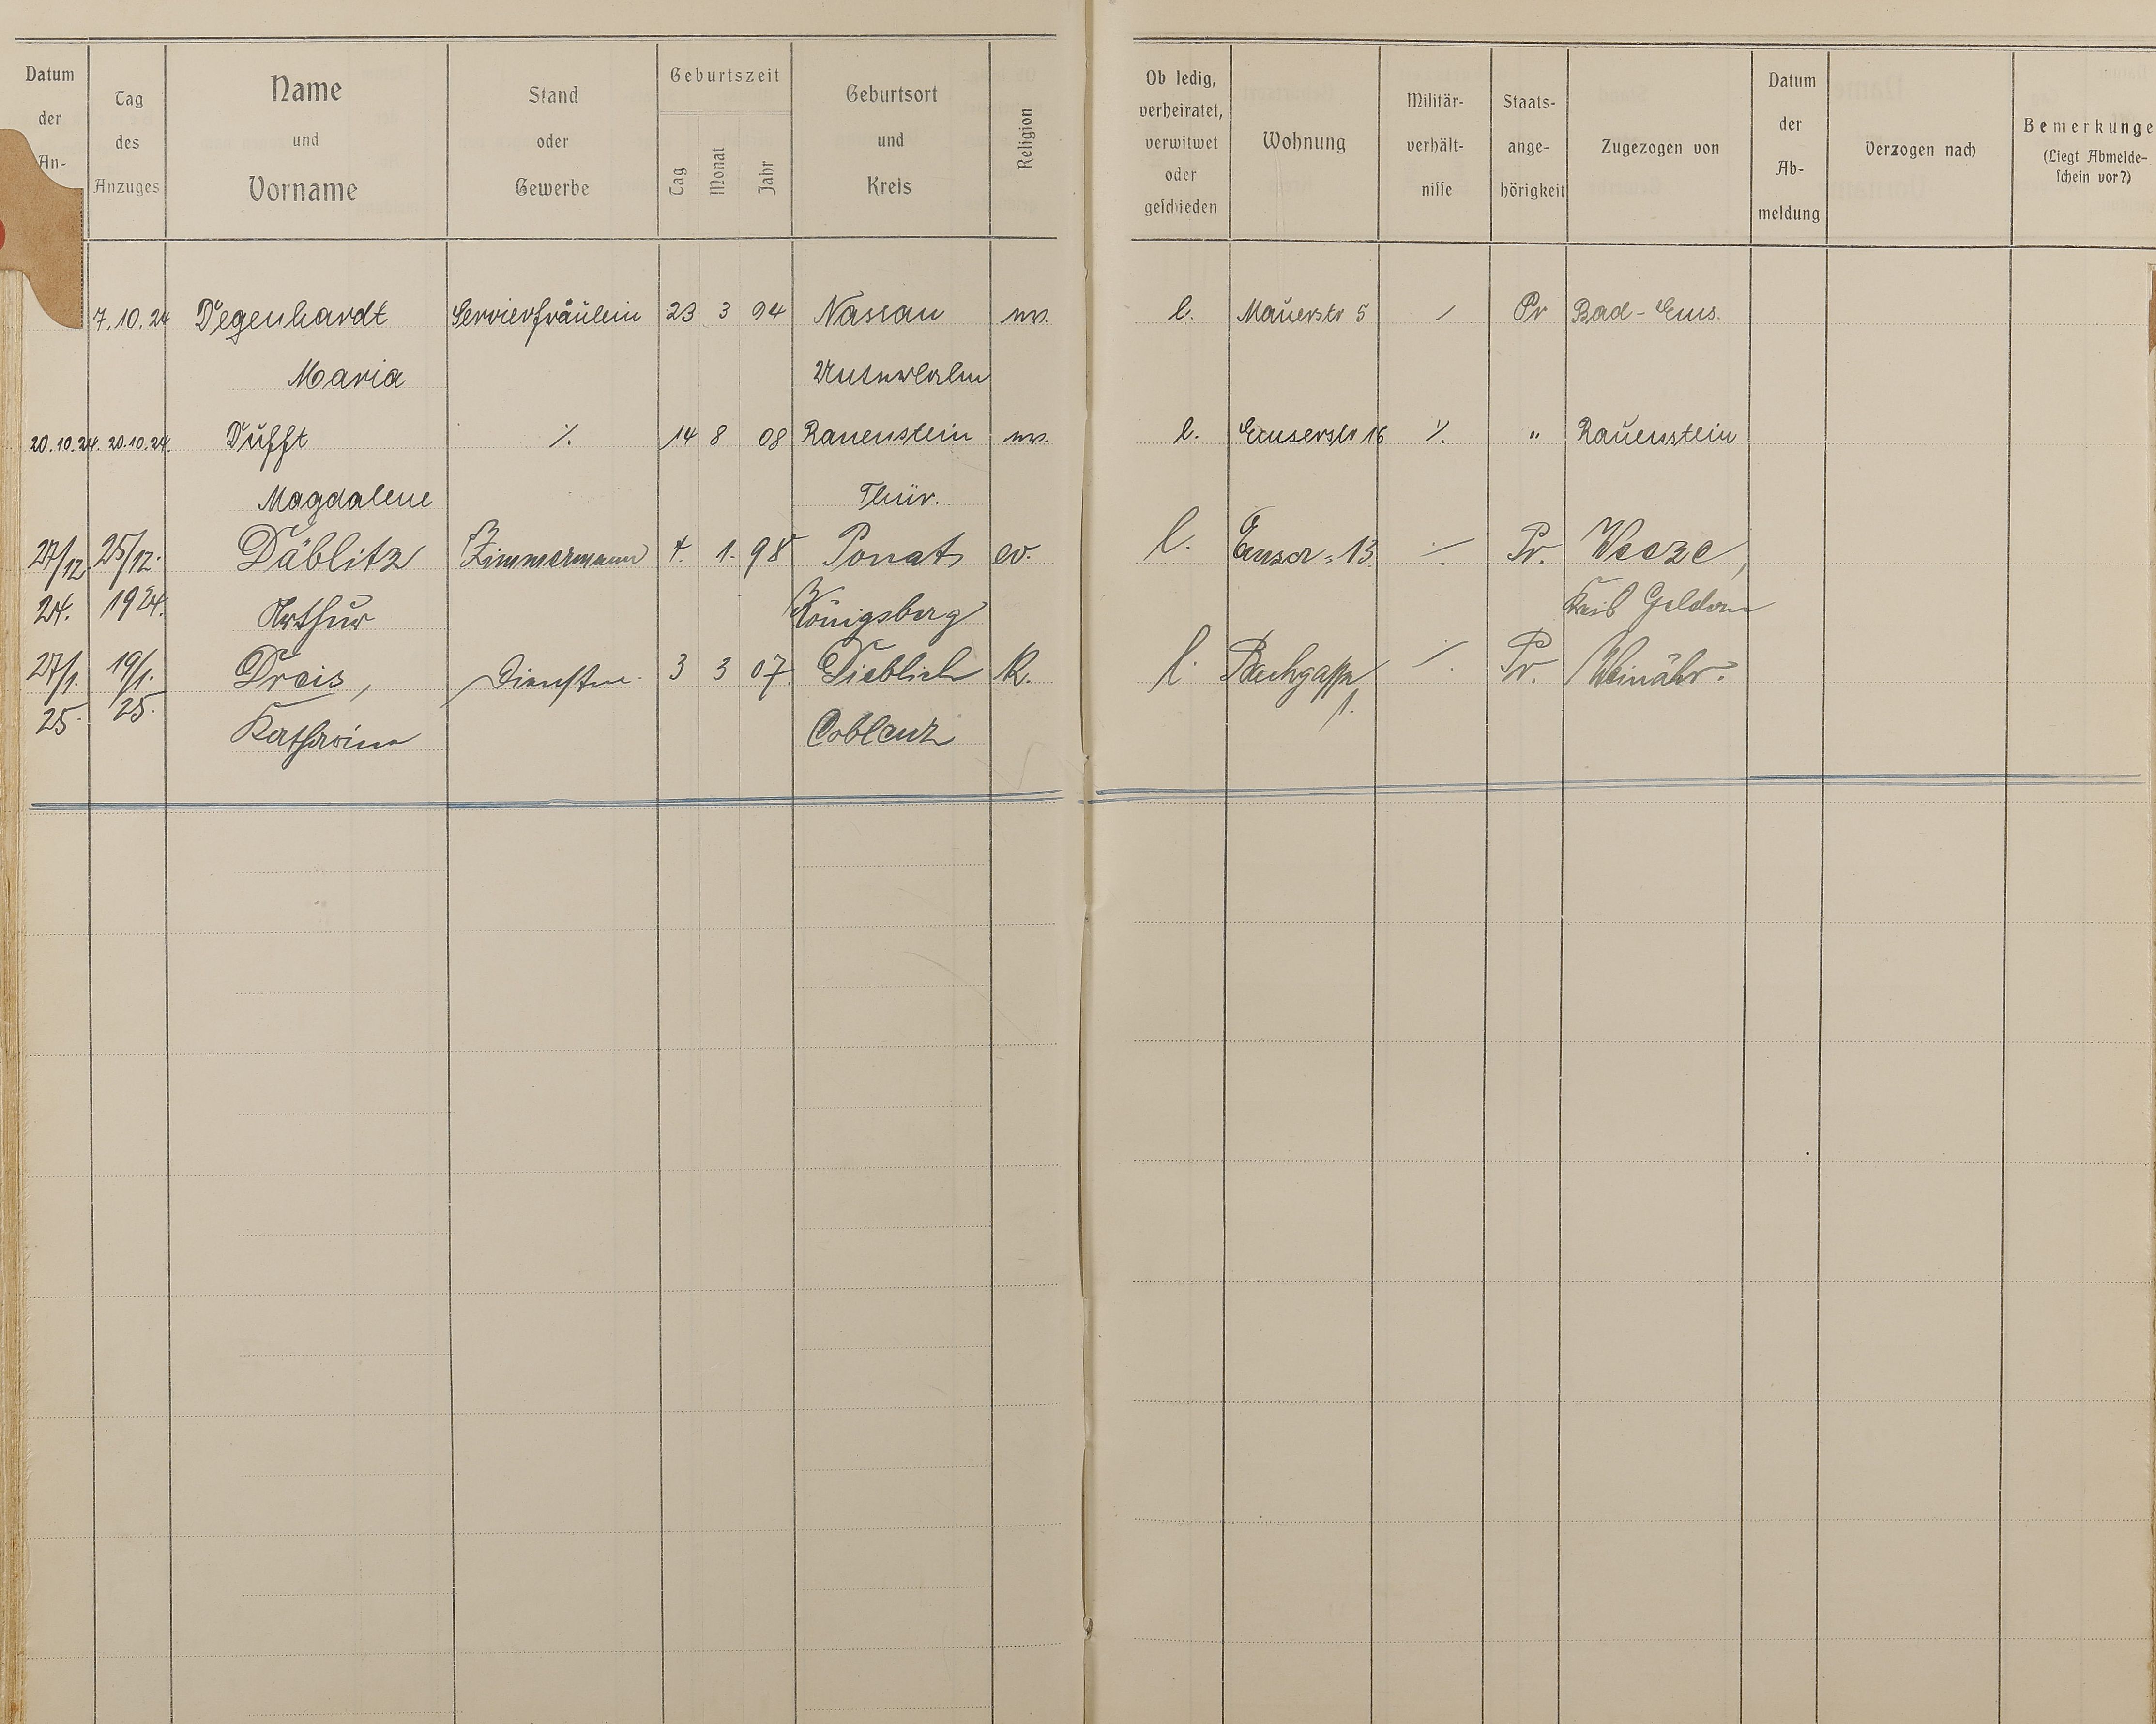 Datum der An-
Tag des Anzuges
Name und Vorname
Stand oder Gewerbe
Geburtszeit
Tag Monat Jahr
Geburtsort und Kreis
Religion
Ob ledig, verheiratet, verwitwet oder geschieden
Wohnung
Militär-verhält-nisse
Staats-ange-hörigkeit
Zugezogen von
Datum der Ab-meldung
Verzogen nach
Bemerkunge
(Liegt Abmelde-schein vor?)
7.10.24 Degenhardt Servierfräulein 23 3 04 Nassau l. Mauerstr 5 / Pr Bad-Ems.
Maria Unterlahn
20.10.24. 20.10.24. Dufft ./. 14 8 08 Rauenstein l. Emserstr 16 ./. " Rauenstein
Magdalene Thür.
27/12 25/12. Däblitz Zimmermann 4. 1. 98 Ponat ev. l. Emser = 13. ./. Pr. Weeze,
24. 1924. Arthur Königsberg Kreis Geldern
27/1. 19/1. Dreis, Dienstm. 3 3 07. Dieblich K. l. Bachgasse ./. Pr. Weinähr.
25. 25. Katharina Coblenz 1.